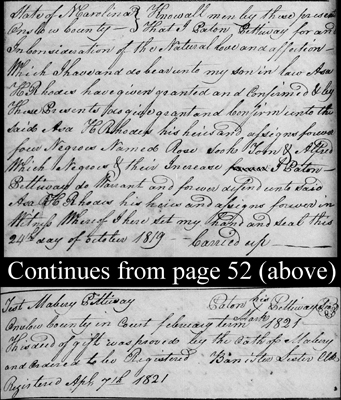 State of N Carolina } Know all men by these presents
Onslow County } That I Eaton Pittway for and
In consideration of the Natural love and affection
Which I have and do bear unto my son in law Asa
H Rhodes have given granted and Confirmed & by
These Presents do give grant and Confirm unto the
Said Asa H Rhodes his heirs and assigns forever
four Negroes Named Rose Tom &
Which Negroes & their Increase I Eaton
Pittway do Warrant and forever defend unto said
Asa H Rhodes his heirs and assigns forever in
Witness Whereof I here set my hand and seal this
24th day of October 1819 Carried up
Continues from page 52 (above)
Test Mabery Pittway Eaton his Mark Pittway
Onslow County in Court february term 1821
This deed of gift was proved by the Oath of Mabery
and Ordered to be Registered Banister Lester Clk
Registered Apl 7th 1821